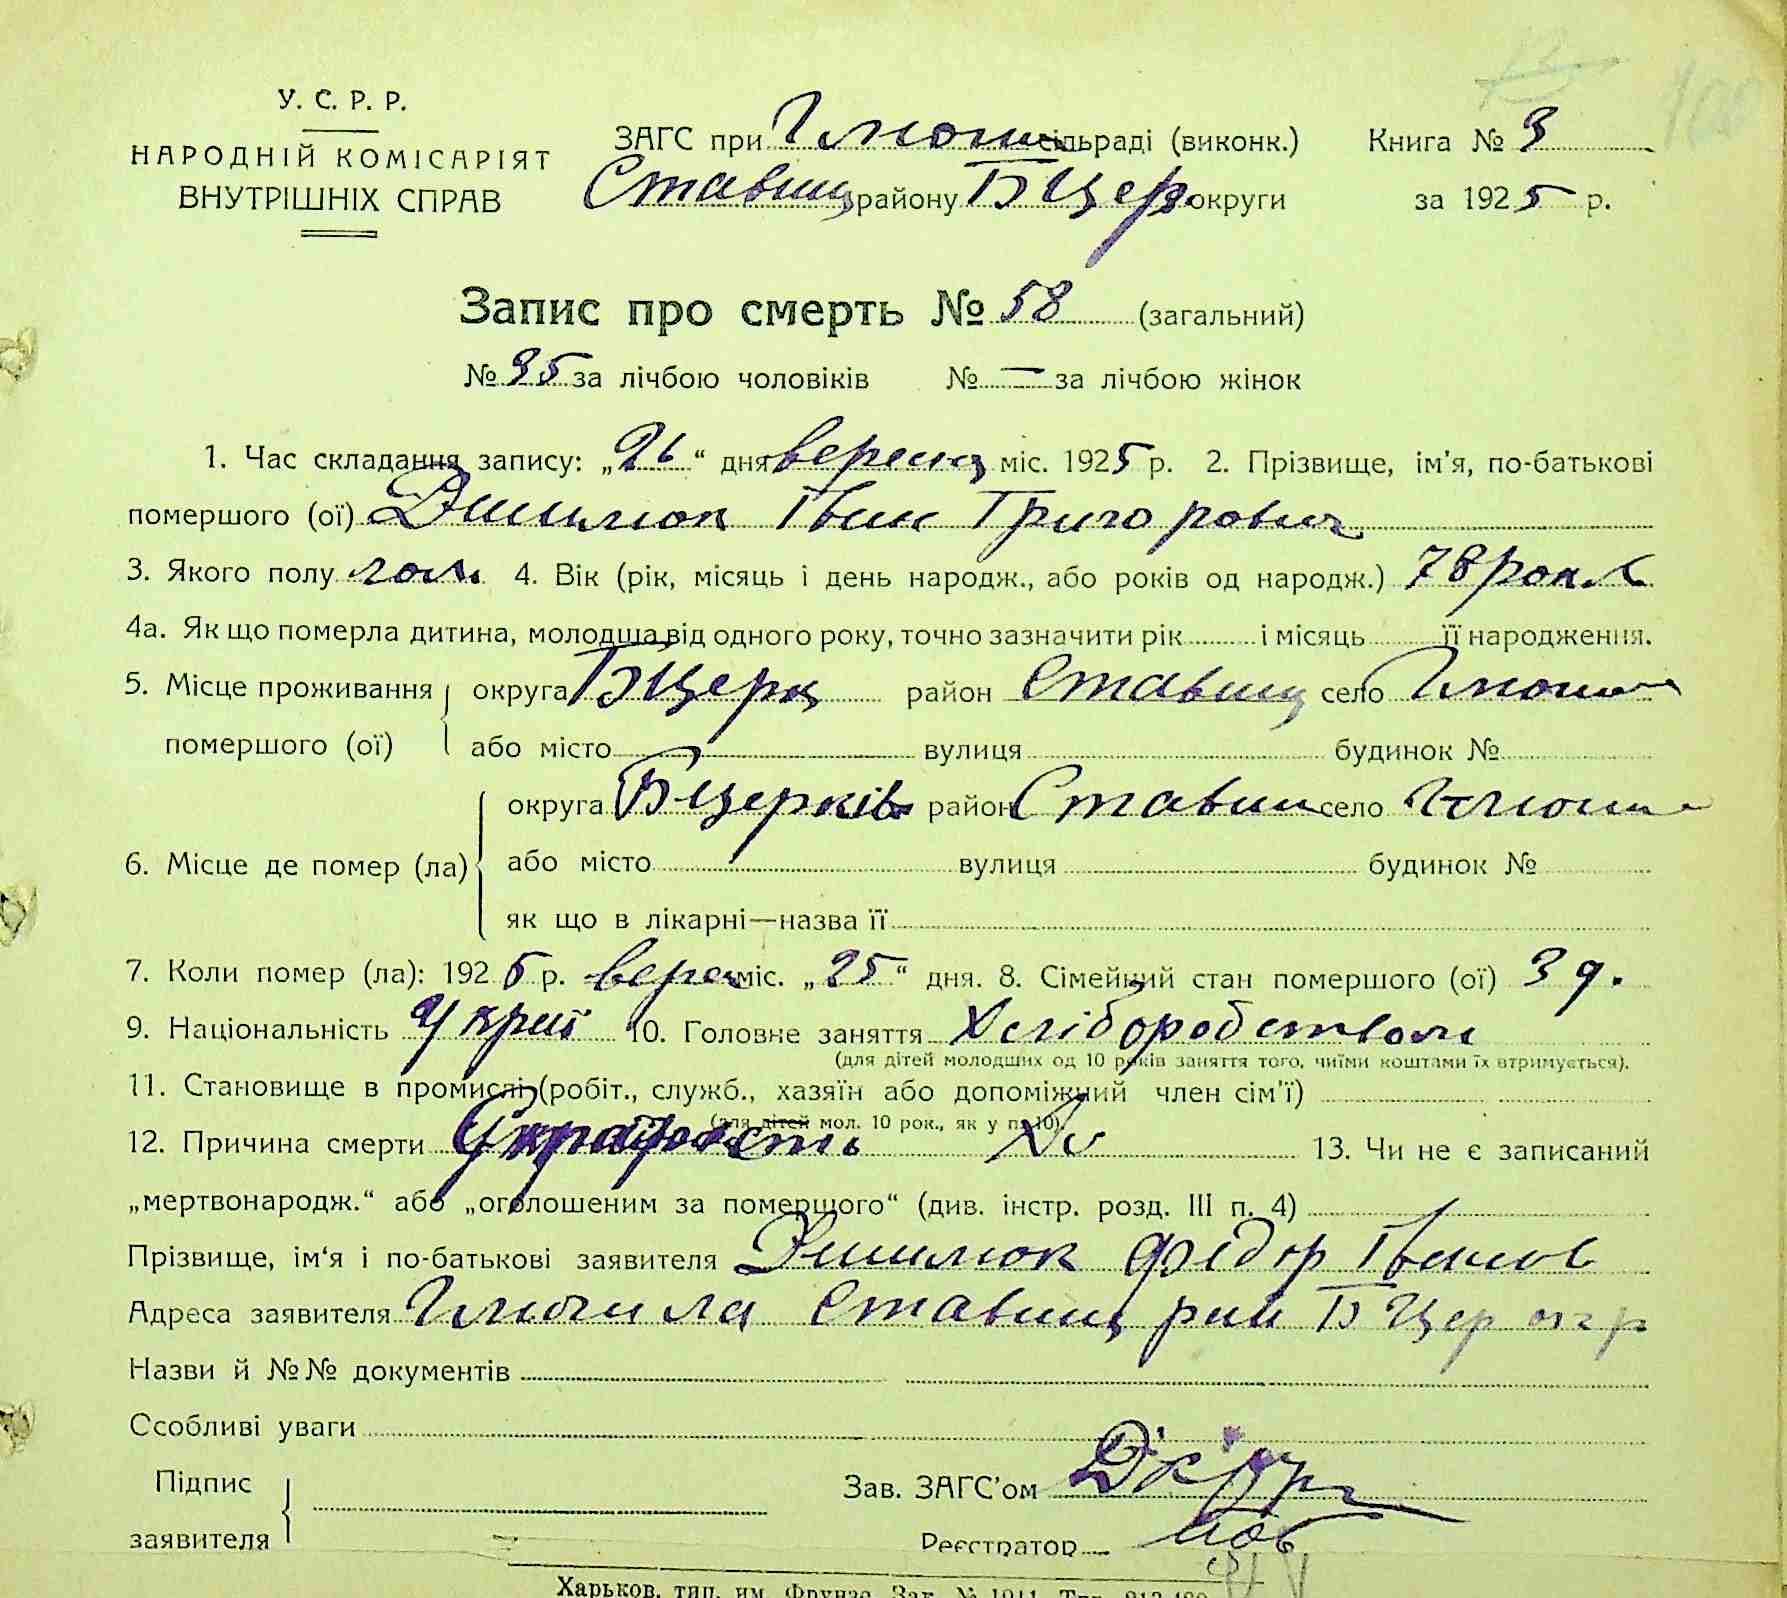 У. С. Р. Р.
НАРОДНІЙ КОМІСАРІЯТ
ВНУТРІШНІХ СПРАВ
ЗАГС при сільраді (виконк.) Книга № 3
Ставищ району БЦер округи за 1925 р.
Запис про смерть № 58 (загальний)
№ 35 за лічбою чоловіків № — за лічбою жінок
1. Час складання запису: „26“ дня вересня міс. 1925 р. 2. Прізвище, ім'я, по-батькові
помершого (ої) Іван Григорович
3. Якого полу чол. 4. Вік (рік, місяць і день народж., або років од народж.) 78 рок.
4а. Як що померла дитина, молодша від одного року, точно зазначити рік і місяць її народження.
5. Місце проживання округа БЦерк район Ставищ село
помершого (ої) або місто вулиця будинок №
округа БЦерків район Ставищ село
6. Місце де помер (ла) або місто вулиця будинок №
як що в лікарні—назва її
7. Коли помер (ла): 1925 р. верес міс. „25“ дня. 8. Сімейний стан помершого (ої)
9. Національність Украй 10. Головне заняття Хліборобством
(для дітей молодших од 10 років заняття того, чиїми коштами їх втримується).
11. Становище в промислі (робіт., служб., хазяїн або допоміжний член сім'ї)
(для дітей мол. 10 рок., як у п. 10).
12. Причина смерти 13. Чи не є записаний
„мертвонародж.“ або „оголошеним за померщого“ (див. інстр. розд. III п. 4)
Прізвище, ім'я і по-батькові заявителя Федор Іванов
Адреса заявителя Ставищ рай БЦер окр
Назви й №№ документів
Особливі уваги
Підпис Зав. ЗАГС'ом
заявителя Реєстратор
Харьков, тип. им. Фрунзе. Зак. № 1041.